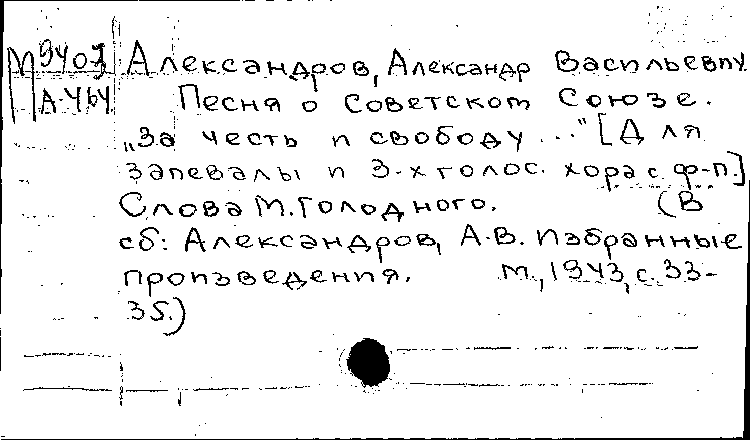 М 9403 Александров, Александр Васильевич
А-464 Песня о Советском Союзе.
„За честь и свободу ..." [Для
запевалы и 3-х голос. хора с ф-п.]
Слова М. Голодного. (В
сб: Александров, А.В. Избранные
произведения. М., 1943, с. 33-
35.)